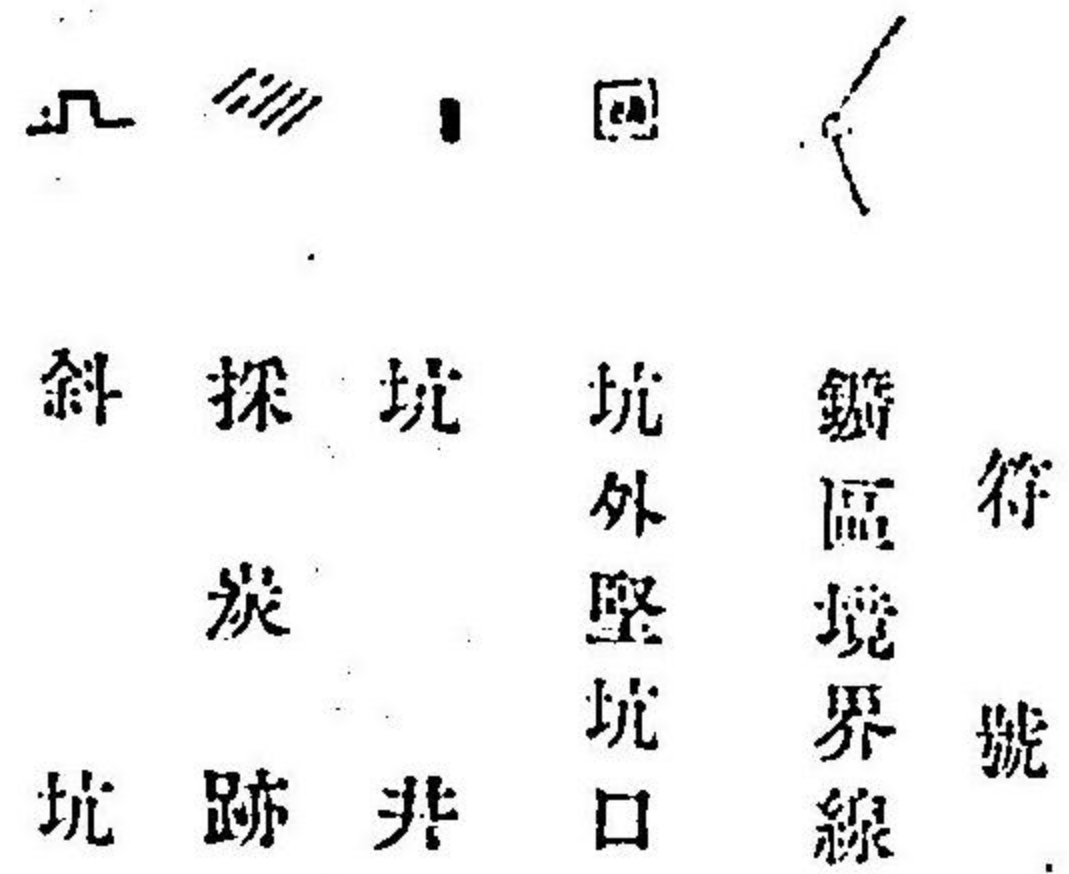 符號
鑛區境界線
坑外竪坑口
坑井
採炭跡
斜坑